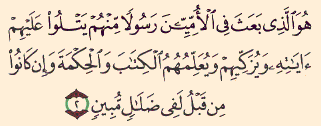 هُوَ ٱلَّذِى بَعَثَ فِى ٱلْأُمِّيِّـۧنَ رَسُولًا مِّنْهُمْ يَتْلُوا۟ عَلَيْهِمْ
ءَايَـٰتِهِۦ وَيُزَكِّيهِمْ وَيُعَلِّمُهُمُ ٱلْكِتَـٰبَ وَٱلْحِكْمَةَ وَإِن كَانُوا۟
مِن قَبْلُ لَفِى ضَلَـٰلٍ مُّبِينٍ ٢